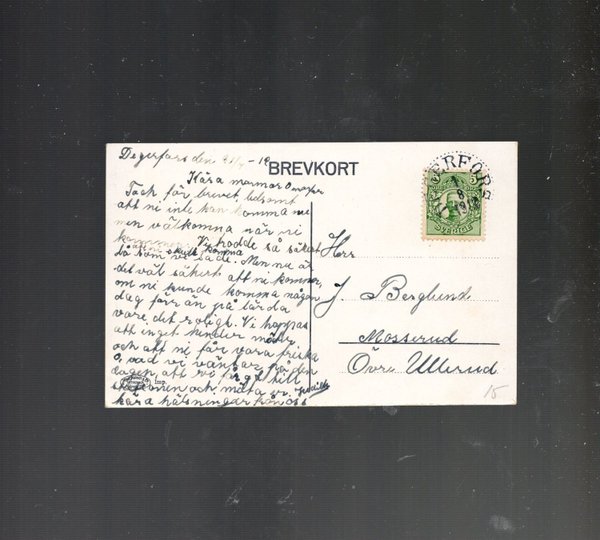 Degerfors den
BREVKORT
Kära mormor o morfar
Tack för brevet, ledsamt
att ni inte kan komma nu
men välkomna när ni
kommer. Vi trodde så säkert
att ni skulle komma
så som vi sade. Men nu är
det väl säkert att ni kommer,
om ni kunde komma någon
dag förr än på lörda
vore det roligt. Vi hoppas
att inget hinder möter
och att ni får vara friska
o, vad vi vängtar på den
dagen, att vi får gå till
stationen och möta er.
kära hälsningar från oss
ERFORS
5
SVERIGE
Herr
J. Berglund
Mosserud
Övre Ullerud
15